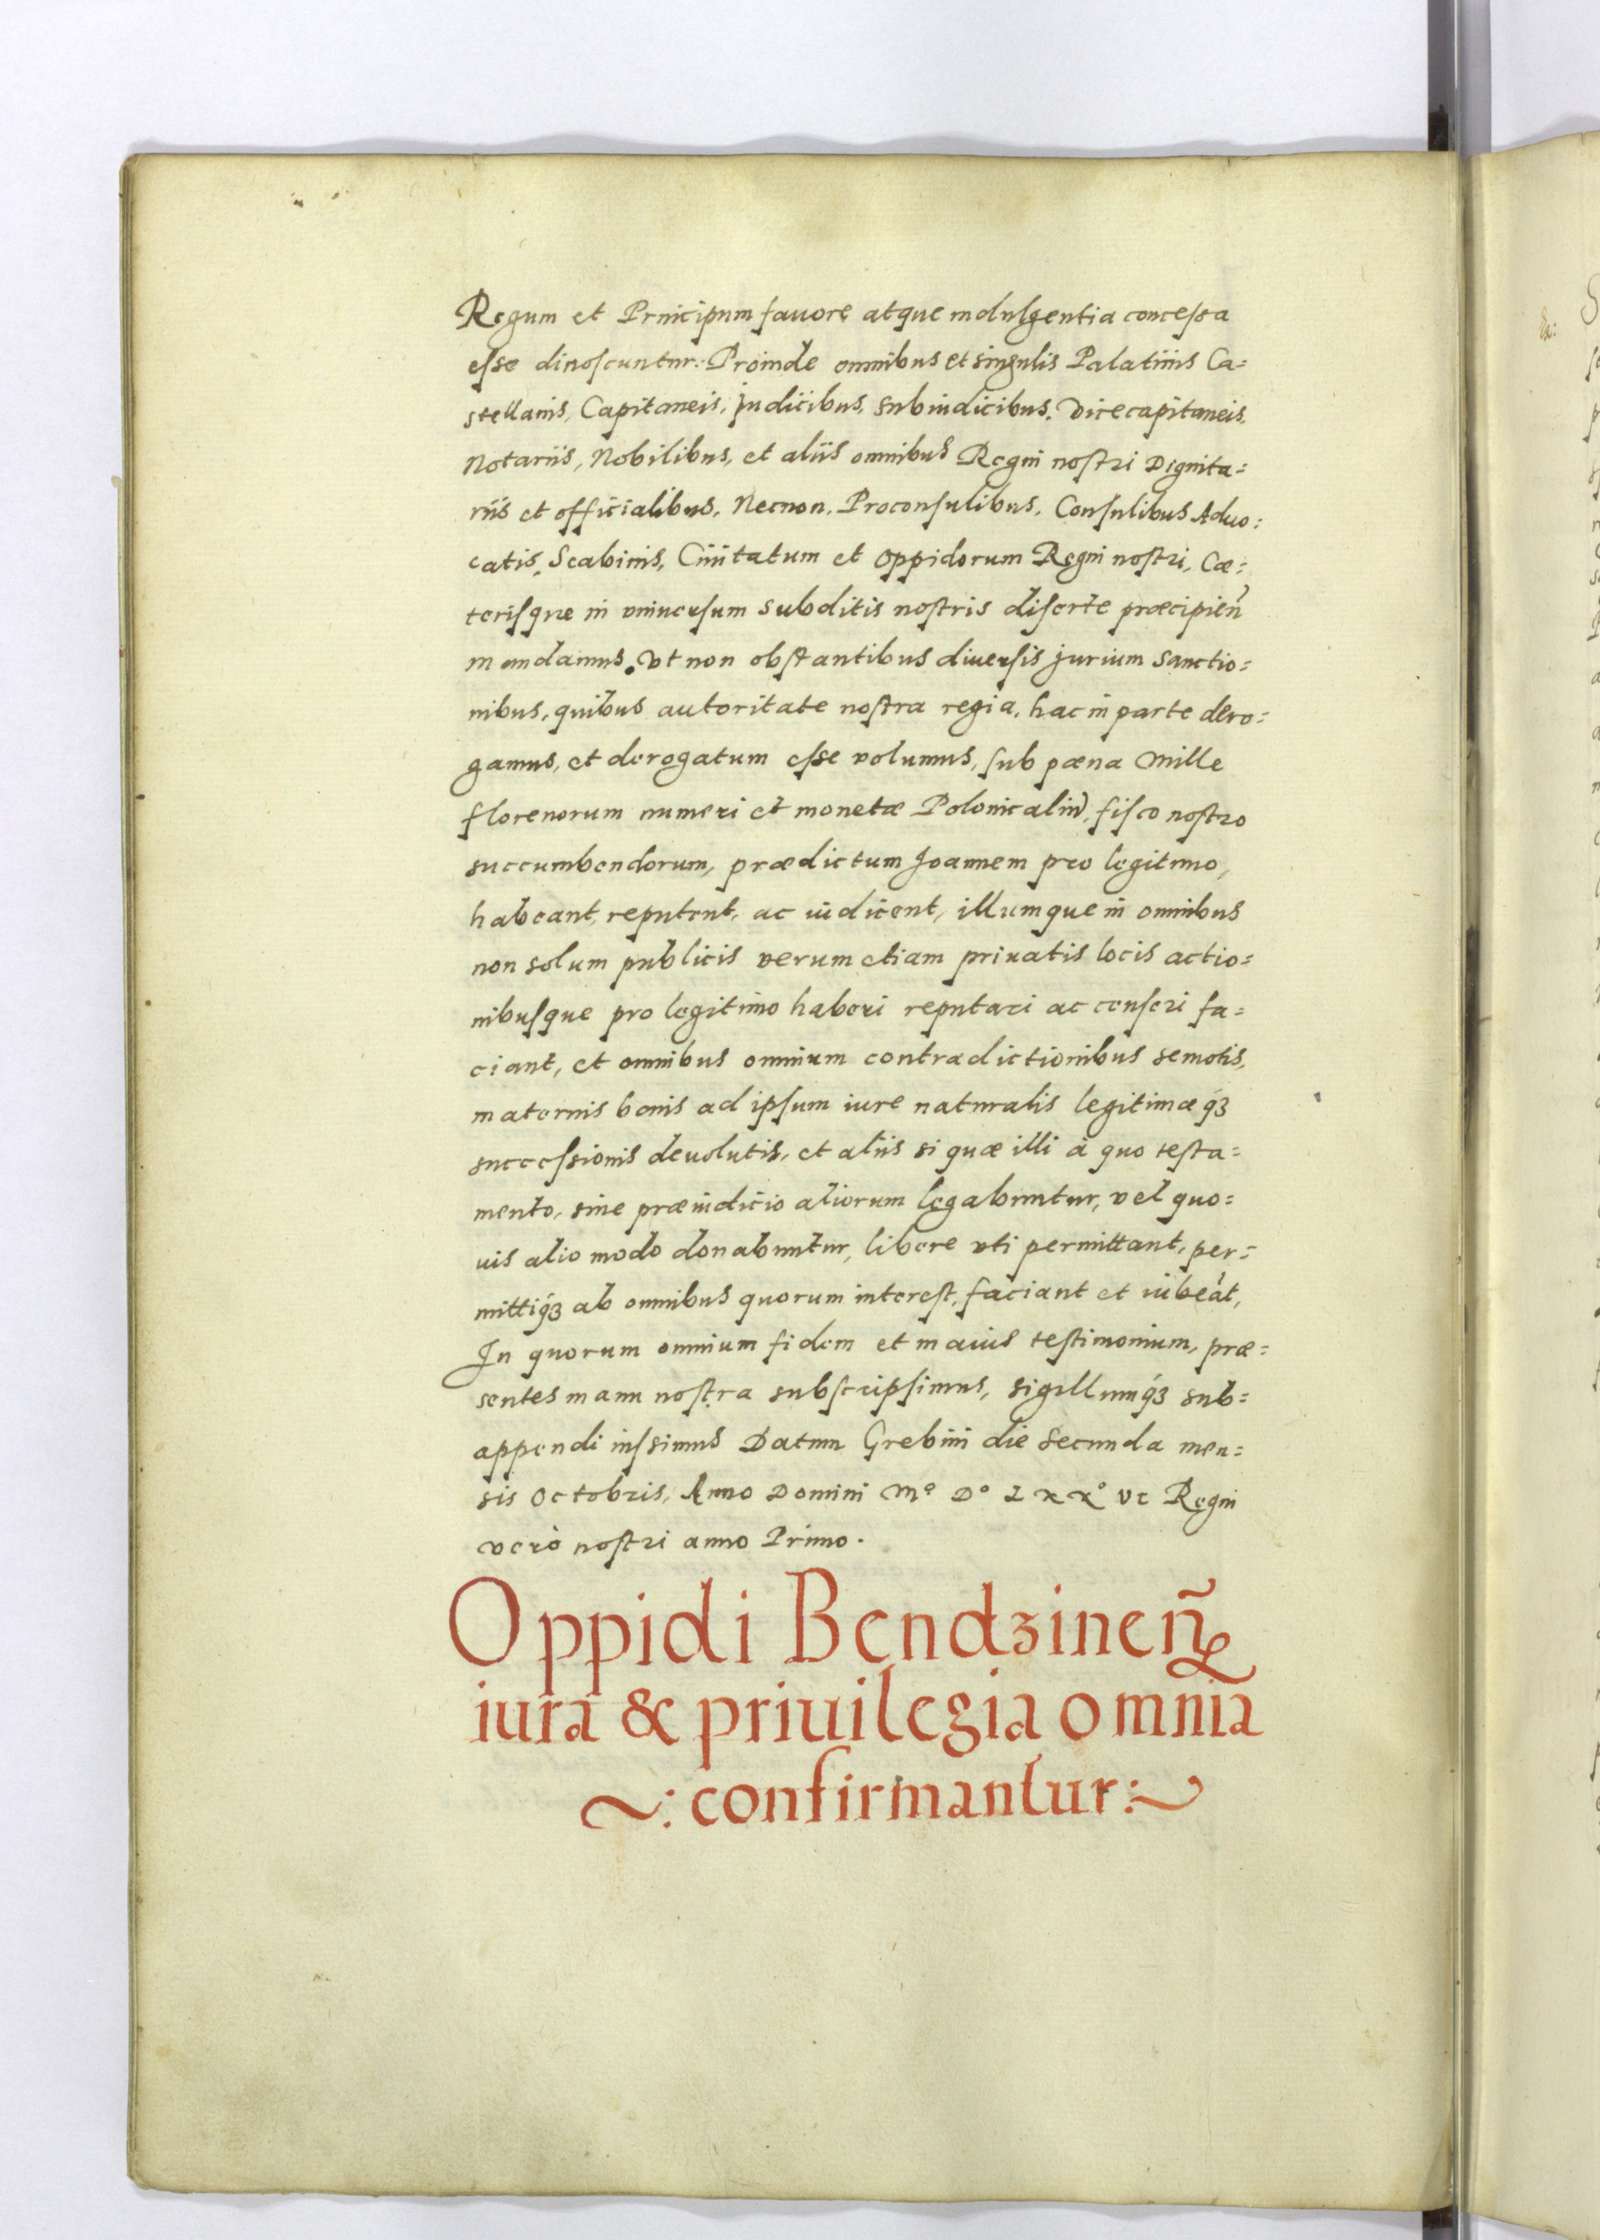 Regum et Principum fauore atque indulgentia concessa
esse dinoscuntur: Proinde omnibus et singulis Palatinis Ca=
stellanis, Capitaneis, Judicibus, Subiudicibus, Vicecapitaneis,
Notariis, Nobilibus, et aliis omnibus Regni nostri Dignita=
riis et officialibus, Necnon, Proconsulibus, Consulibus Aduo:
catis, Scabinis, Ciuitatum et Oppidorum Regni nostri, Cæ=
terisque in vniuersum subditis nostris diserte præcipień
mandamus. Vt non obstantibus diuersis jurium sanctio=
nibus, quibus autoritate nostra regia, hac in parte dero=
gamus, et derogatum esse volumus, sub pœna Mille
florenorum numeri et monetæ Polonicaliũ, fisco nostro
succumbendorum, prædictum Joannem pro legitimo,
habeant, reputent, ac iudicent, illumque in omnibus
non solum publicis verum etiam priuatis locis actio=
nibusque pro legitimo haberi reputari ac censeri fa=
ciant, et omnibus omnium contradictionibus semotis,
maternis bonis ad ipsum iure naturalis legitimæ q́ꝫ
successionis deuolutis, et aliis si quæ illi à quo testa=
mento, sine præiudicio aliorum legabuntur, vel quo=
uis alio modo donabuntur, libere vti permittant, per=
mittiq́ꝫ ab omnibus quorum interest, faciant et iubeãt,
In quorum omnium fidem et maius testimonium, præ=
sentes manu nostra subscripsimus, sigillumq́ꝫ sub=
appendi iussimus Datum Grebini die Secunda men=
sis Octobris, Anno Domini Mº Dº LXXº VI Regni
verò nostri anno Primo.
Oppidi Bendzineñ
iura & priuilegia omnia
~: confirmantur :~